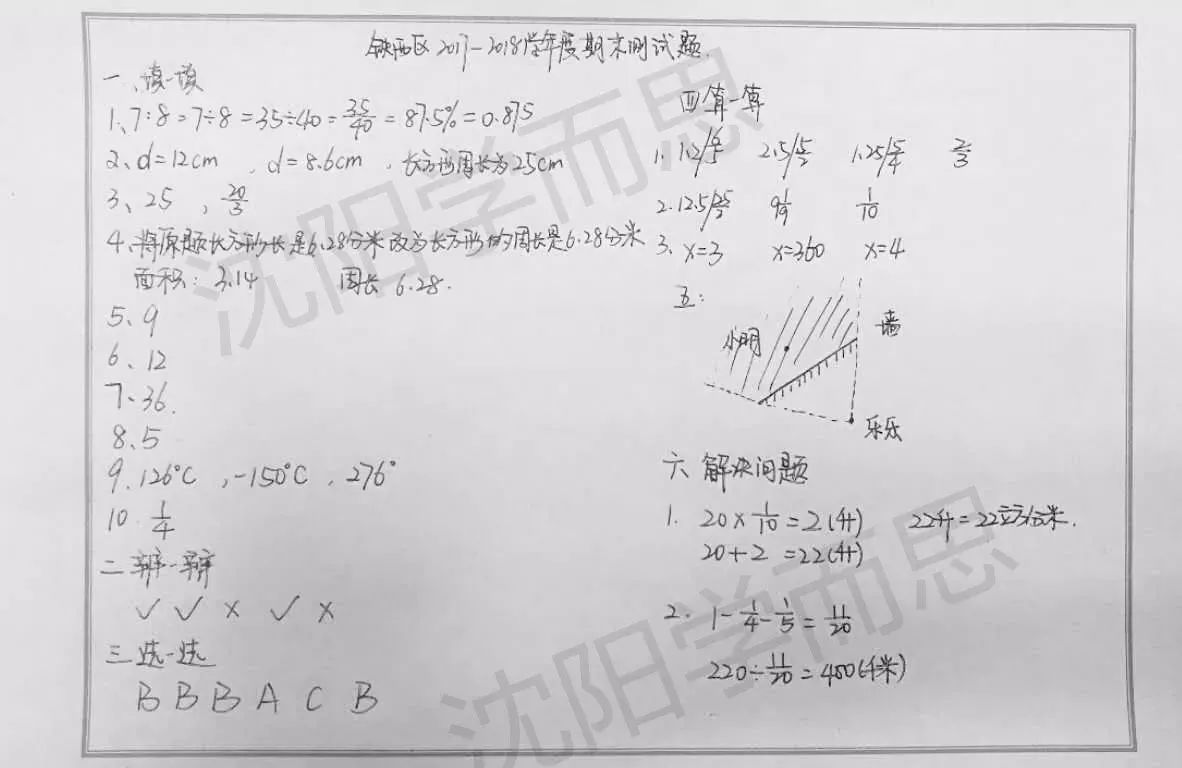 铁西区2017-2018学年度期末测试题.
一、填一填
1、7:8=7÷8=35÷40=35/40=87.5%=0.875
2、d=12cm , d=8.6cm , 长方形周长为25cm
3、25 , 20/3
4、将原题长方形长是6.28分米改为长方形的周长是6.28分米
面积: 3.14 周长 6.28.
5、9
6、12
7、36.
8、5
9、126°C , -150°C , 276°
10. 1/4
二 辨一辩
✓ ✓ × ✓ ×
三 选一选
B B B A C B
四 算一算
1. 1.2/6/5 2.5/5/2 1.25/5/4 2/3
2. 12.5/25/2 9 1/9 1/10
3、x=3 x=360 x=4
五:
小明
墙
乐乐
六 解决问题
1. 20×1/10=2(升) 22升=22立方分米.
20+2 =22(升)
2. 1-1/4-1/5=11/20
220÷11/20=400(千米)
沈阳学而思
沈阳学而思
沈阳学而思